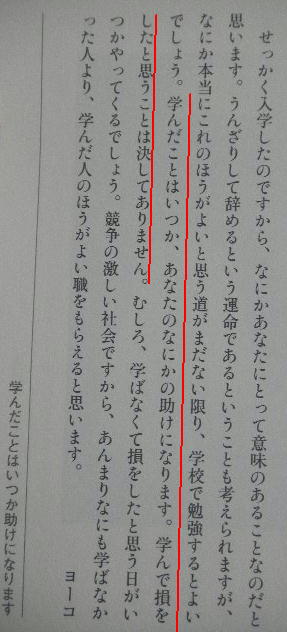 せっかく入学したのですから、なにかあなたにとって意味のあることなのだと
思います。うんざりして辞めるという運命であるということも考えられますが、
なにか本当にこれのほうがよいと思う道がまだない限り、学校で勉強するとよい
でしょう。学んだことはいつか、あなたのなにかの助けになります。学んで損を
したと思うことは決してありません。むしろ、学ばなくて損をしたと思う日がい
つかやってくるでしょう。競争の激しい社会ですから、あんまりなにも学ばなか
った人より、学んだ人のほうがよい職をもらえると思います。
ヨーコ
学んだことはいつか助けになります